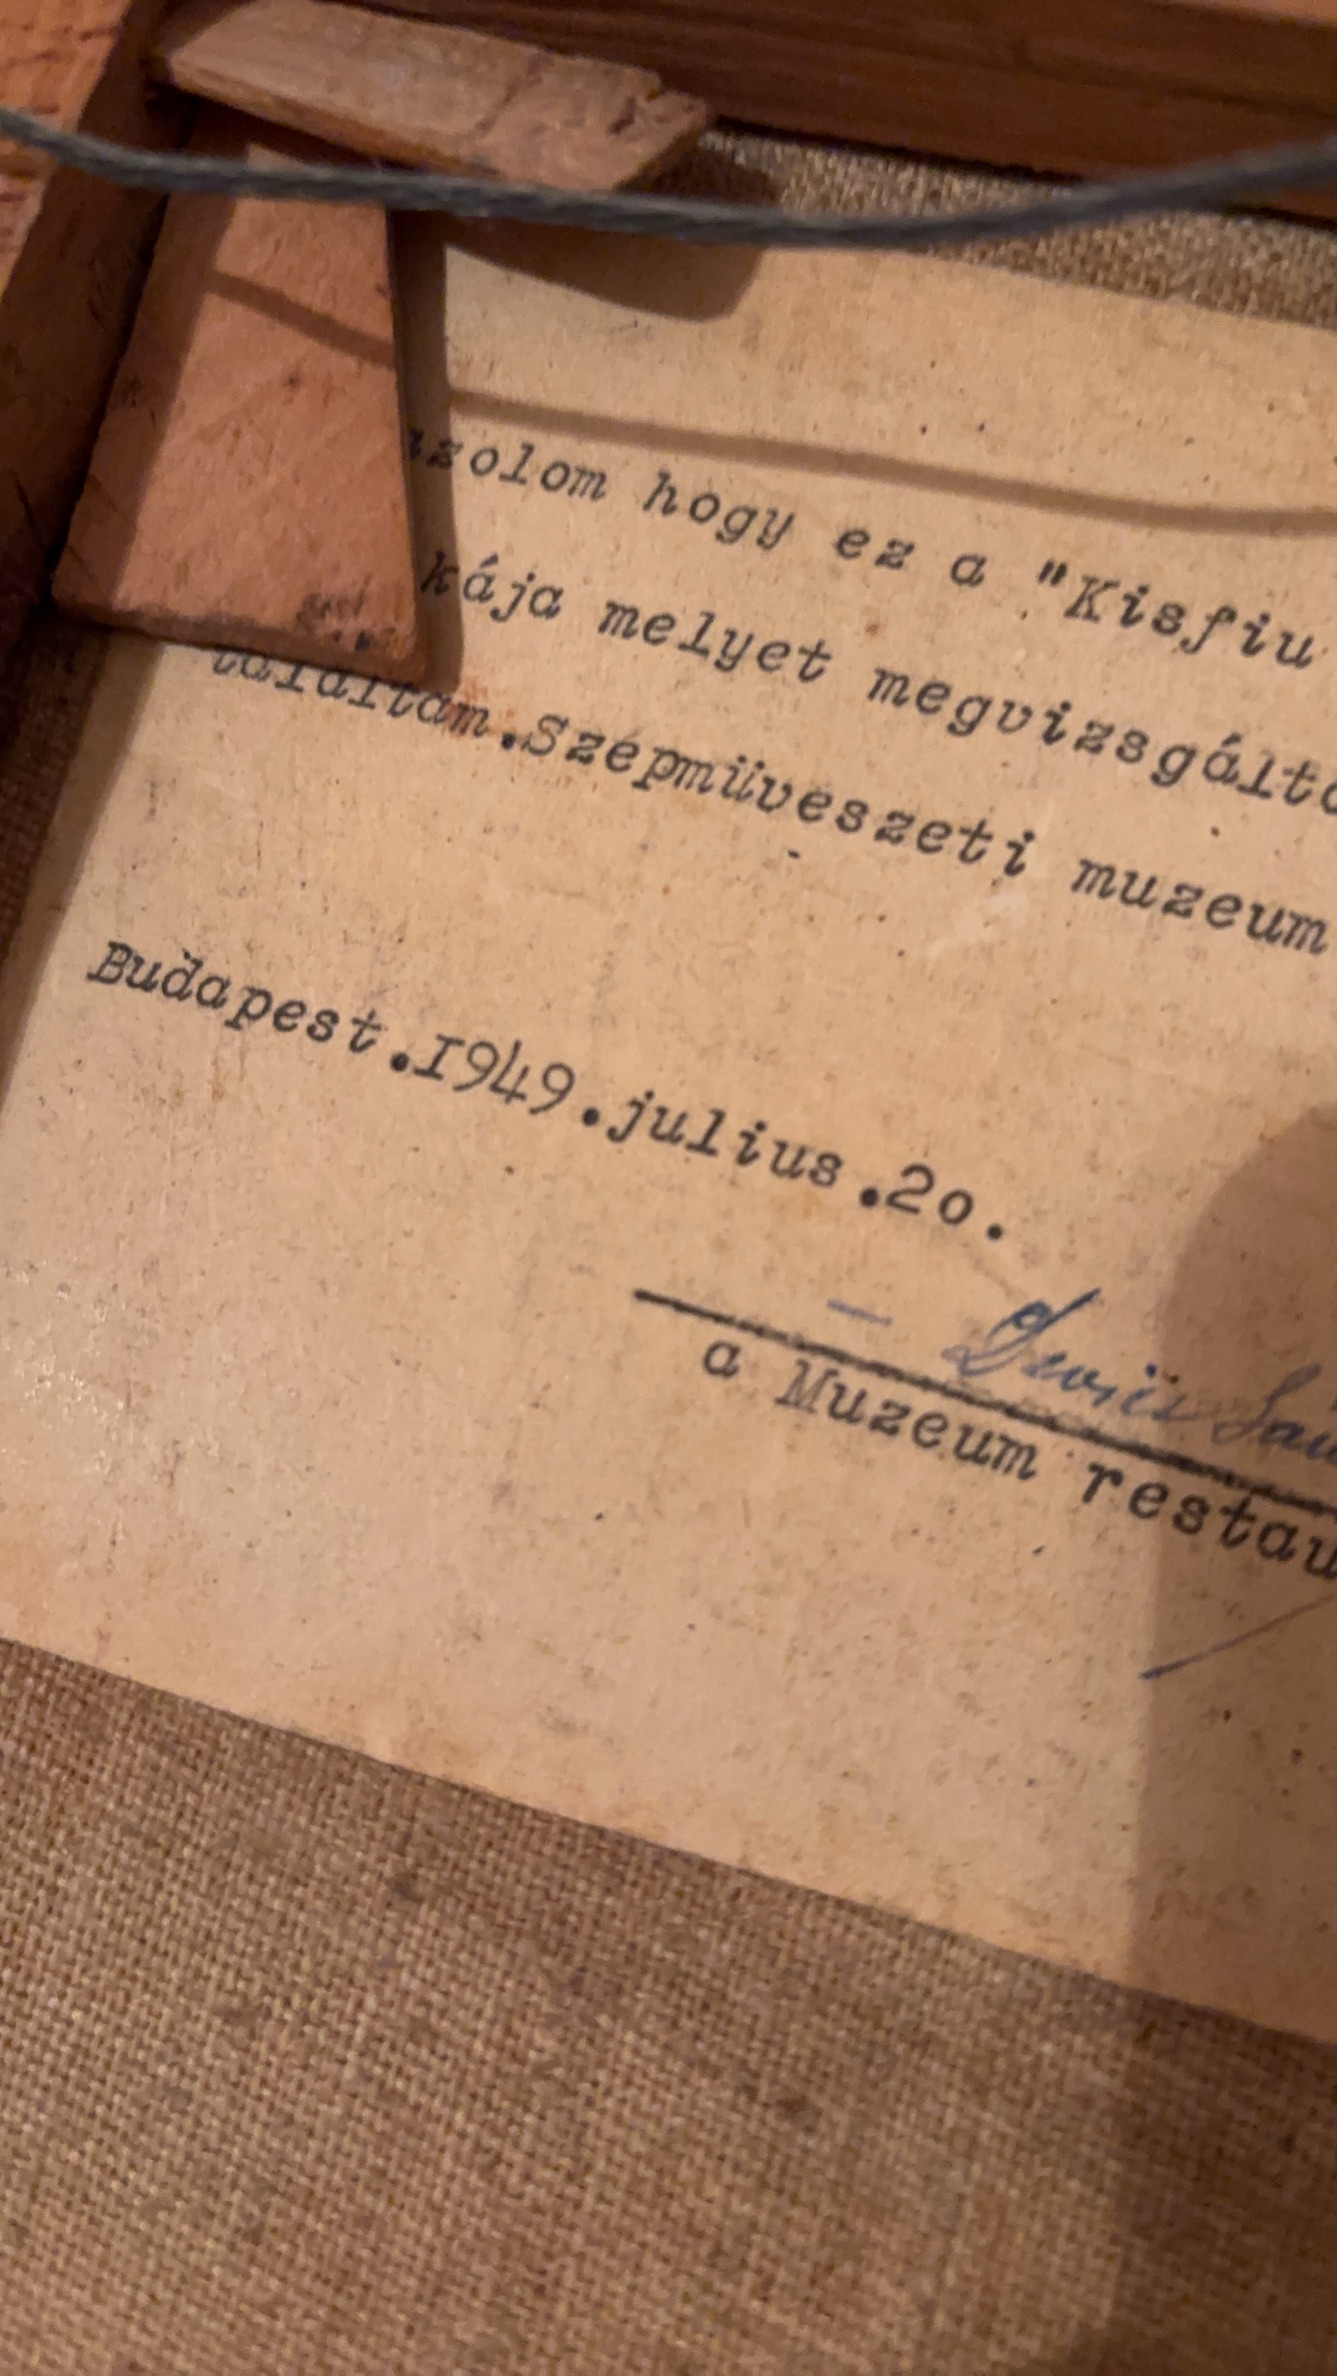 azolom hogy ez a "Kisfiu
kája melyet megvizsgálto
találtam.Szépmüveszeti muzeum
Budapest.I949.julius.2o.
a Muzeum restau